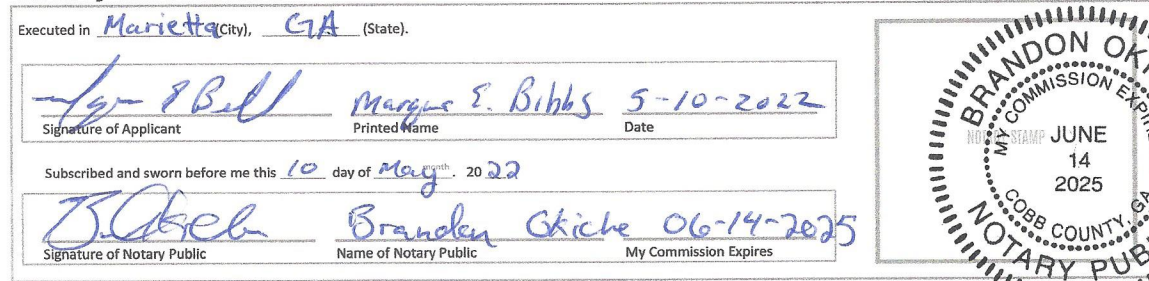 Executed in Marietta (City), GA (State).
Marqus E. Bibbs 5-10-2022
Signature of Applicant Printed Name Date
Subscribed and sworn before me this 10 day of May month. 20 22
Brandon Okiche 06-14-2025
Signature of Notary Public Name of Notary Public My Commission Expires
NOTARY STAMP
BRANDON OKI
MY COMMISSION EXPIRE
JUNE
14
2025
COBB COUNTY, GA
NOTARY PUB